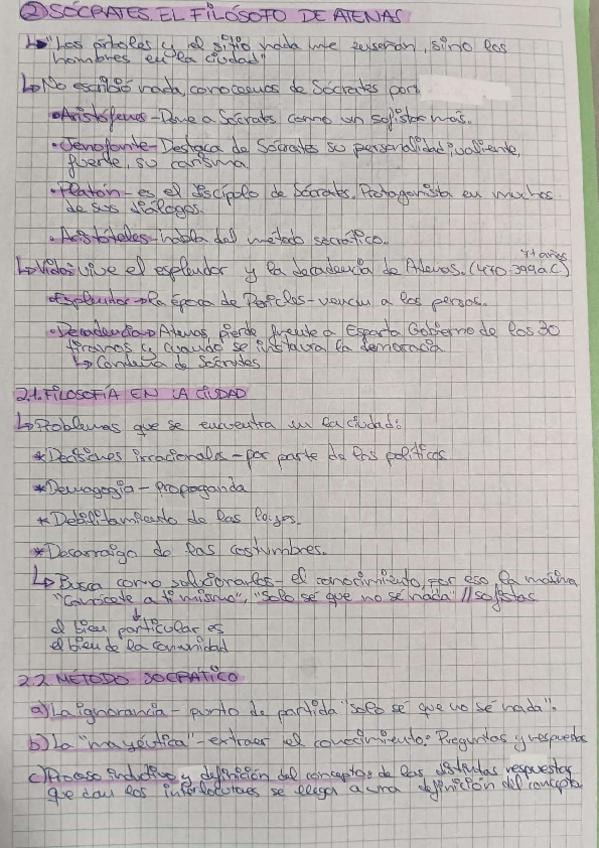 ② SÓCRATES. EL FILÓSOFO DE ATENAS
↳ "Los árboles y el sitio nada me enseñan, sino los
hombres en la ciudad"
↳ No escribió nada, conocemos de Sócrates por:
• Aristófenes - Pone a Sócrates como un sofista más.
• Jenofonte - Destaca de Sócrates su personalidad; valiente,
fuerte, su carisma.
• Platón - es el discípolo de Sócrates. Protagonista en muchos
de sus diálogos.
• Aristóteles - habla del método socrático.
71 años
↳ Vida: vive el esplendor y la decadencia de Atenas. (470-399 a.C)
• Esplendor → la época de Pericles - vencen a los persas.
• Decadencia → Atenas pierde frente a Esparta Gobierno de los 30
tiranos y cuando se instaura la democracia
↳ Condena de Sócrates
2.1. FILOSOFÍA EN LA CIUDAD
↳ Problemas que se encuentra en la ciudad:
* Decisiones irracionales - por parte de los políticos
* Demagogia - Propaganda
* Debilitamiento de las leyes.
* Desarraigo de las costumbres.
↳ Busca como solucionarlos - el conocimiento, por eso, la máxima
"Conócete a ti mismo", "Solo sé que no sé nada" // sofistas
↓
el bien particular es
el bien de la comunidad
2.2. MÉTODO SOCRÁTICO
a) La ignorancia - punto de partida "solo sé que no sé nada".
b) La "mayéutica" - extraer el conocimiento: Preguntas y respuestas
c) Proceso inductivo y definición del concepto: de las distintas respuestas
que dan los interlocutores se llega a una definición del concepto